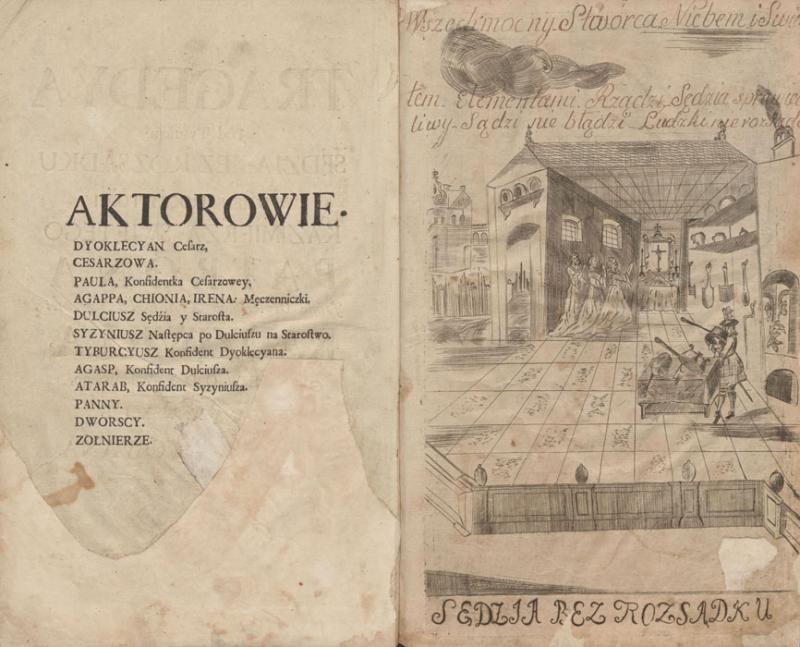 AKTOROWIE.
DYOKLECYAN Cesarz,
CESARZOWA.
PAULA, Konfidentka Cesarzowey,
AGAPPA, CHIONIA, IRENA: Męczenniczki,
DULCIUSZ Sędźia y Starosta.
SYZYNIUSZ Następca po Dulciuszu na Starostwo.
TYBURCYUSZ Konfident Dyoklecyana.
AGASP, Konfident Dulciusza.
ATARAB, Konfident Syzyniusza.
PANNY.
DWORSCY.
ZOŁNIERZE.
Wszechmocny Stwórca Niebem i Swia
tem. Elementami. Rządzi, Sędzia sprawied
liwy. Sądzi nie błądzi Ludzki nie rozsąd
SĘDZIA BEZ ROZSĄDKU